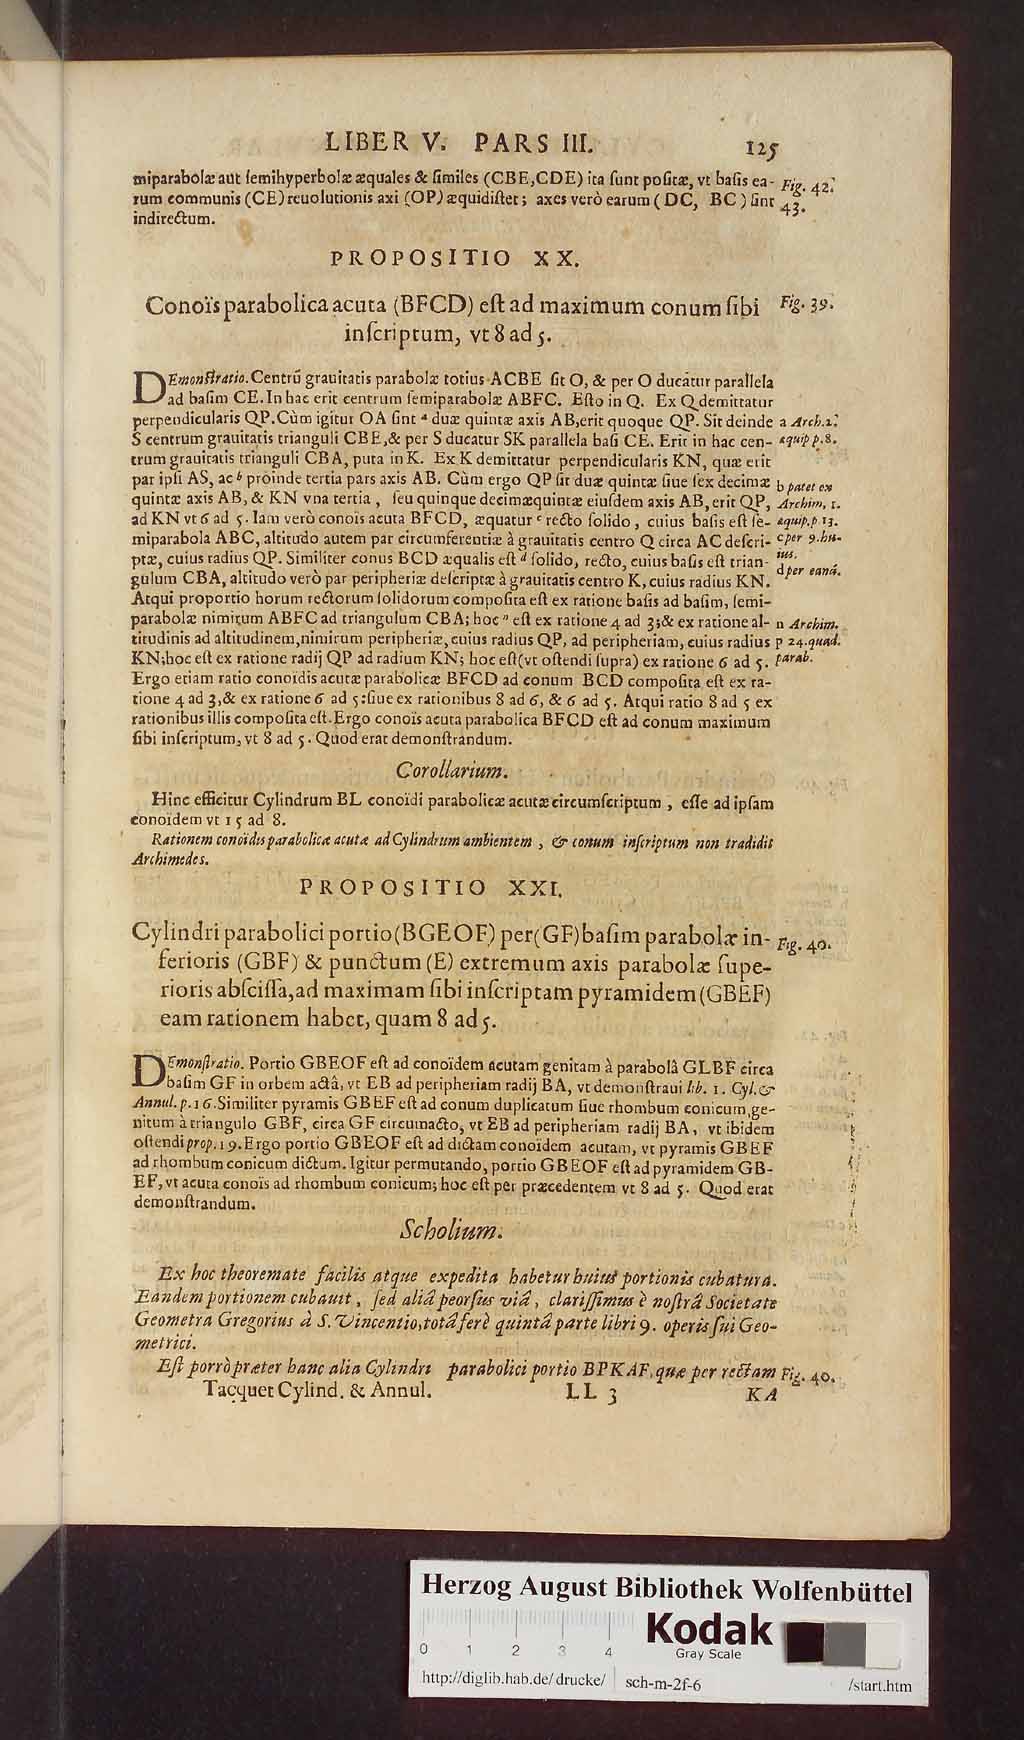 LIBER V. PARS III. 125
miparabolæ aut ſemihyperbolæ æquales & ſimiles (CBE,CDE) ita ſunt poſitæ, vt baſis ea- Fig. 42.
rum communis (CE) reuolutionis axi (OP) æquidiſtet; axes verò earum (DC, BC) ſint 43.
indirectum.
PROPOSITIO XX.
Conoïs parabolica acuta (BFCD) eſt ad maximum conum ſibi Fig. 39.
inſcriptum, vt 8 ad 5.
DEmonſtratio. Centrũ grauitatis parabolæ totius ACBE ſit O, & per O ducatur parallela
ad baſim CE. In hac erit centrum ſemiparabolæ ABFC. Eſto in Q. Ex Q demittatur
perpendicularis QP. Cùm igitur OA ſint a duæ quintæ axis AB, erit quoque QP. Sit deinde a Arch. 2.
S centrum grauitatis trianguli CBE, & per S ducatur SK parallela baſi CE. Erit in hac cen- æquip p. 8.
trum grauitatis trianguli CBA, puta in K. Ex K demittatur perpendicularis KN, quæ erit
par ipſi AS, ac b proinde tertia pars axis AB. Cùm ergo QP ſit duæ quintæ ſiue ſex decimæ b patet ex
quintæ axis AB, & KN vna tertia, ſeu quinque decimæquintæ eiuſdem axis AB, erit QP, Archim. 1.
ad KN vt 6 ad 5. Iam verò conoïs acuta BFCD, æquatur c recto ſolido, cuius baſis eſt ſe- æquip. p 13.
miparabola ABC, altitudo autem par circumferentiæ à grauitatis centro Q circa AC deſcri- c per 9. hu-
ptæ, cuius radius QP. Similiter conus BCD æqualis eſt d ſolido, recto, cuius baſis eſt trian- ius.
gulum CBA, altitudo verò par peripheriæ deſcriptæ à grauitatis centro K, cuius radius KN. d per eand.
Atqui proportio horum rectorum ſolidorum compoſita eſt ex ratione baſis ad baſim, ſemi-
parabolæ nimirum ABFC ad triangulum CBA; hoc n eſt ex ratione 4 ad 3; & ex ratione al- n Archim.
titudinis ad altitudinem, nimirum peripheriæ, cuius radius QP, ad peripheriam, cuius radius p 24. quad.
KN; hoc eſt ex ratione radij QP ad radium KN; hoc eſt (vt oſtendi ſupra) ex ratione 6 ad 5. parab.
Ergo etiam ratio conoïdis acutæ parabolicæ BFCD ad conum BCD compoſita eſt ex ra-
tione 4 ad 3, & ex ratione 6 ad 5: ſiue ex rationibus 8 ad 6, & 6 ad 5. Atqui ratio 8 ad 5 ex
rationibus illis compoſita eſt. Ergo conoïs acuta parabolica BFCD eſt ad conum maximum
ſibi inſcriptum, vt 8 ad 5. Quod erat demonſtrandum.
Corollarium.
Hinc efficitur Cylindrum BL conoïdi parabolicæ acutæ circumſcriptum, eſſe ad ipſam
conoïdem vt 15 ad 8.
Rationem conoïdis parabolicæ acutæ ad Cylindrum ambientem, & conum inſcriptum non tradidit
Archimedes.
PROPOSITIO XXI.
Cylindri parabolici portio (BGEOF) per (GF) baſim parabolæ in- Fig. 40.
ferioris (GBF) & punctum (E) extremum axis parabolæ ſupe-
rioris abſciſſa, ad maximam ſibi inſcriptam pyramidem (GBEF)
eam rationem habet, quam 8 ad 5.
DEmonſtratio. Portio GBEOF eſt ad conoïdem acutam genitam à parabolâ GLBF circa
baſim GF in orbem actâ, vt EB ad peripheriam radij BA, vt demonſtraui lib. 1. Cyl. &
Annul. p. 16. Similiter pyramis GBEF eſt ad conum duplicatum ſiue rhombum conicum, ge-
nitum à triangulo GBF, circa GF circumacto, vt EB ad peripheriam radij BA, vt ibidem
oſtendi prop. 19. Ergo portio GBEOF eſt ad dictam conoïdem acutam, vt pyramis GBEF
ad rhombum conicum dictum. Igitur permutando, portio GBEOF eſt ad pyramidem GB-
EF, vt acuta conoïs ad rhombum conicum; hoc eſt per præcedentem vt 8 ad 5. Quod erat
demonſtrandum.
Scholium.
Ex hoc theoremate facilis atque expedita habetur huius portionis cubatura.
Eandem portionem cubauit, ſed aliâ peorſus viâ, clariſſimus è noſtrâ Societate
Geometra Gregorius à S. Vincentio, totâ ferè quintâ parte libri 9. operis ſui Geo-
metrici.
Eſt porrò præter hanc alia Cylindri parabolici portio BPKAF, quæ per rectam Fig. 40.
Tacquet Cylind. & Annul. LL 3 KA
Herzog August Bibliothek Wolfenbüttel
Kodak
Gray Scale
0 1 2 3 4
http://diglib.hab.de/drucke/ sch-m-2f-6 /start.htm